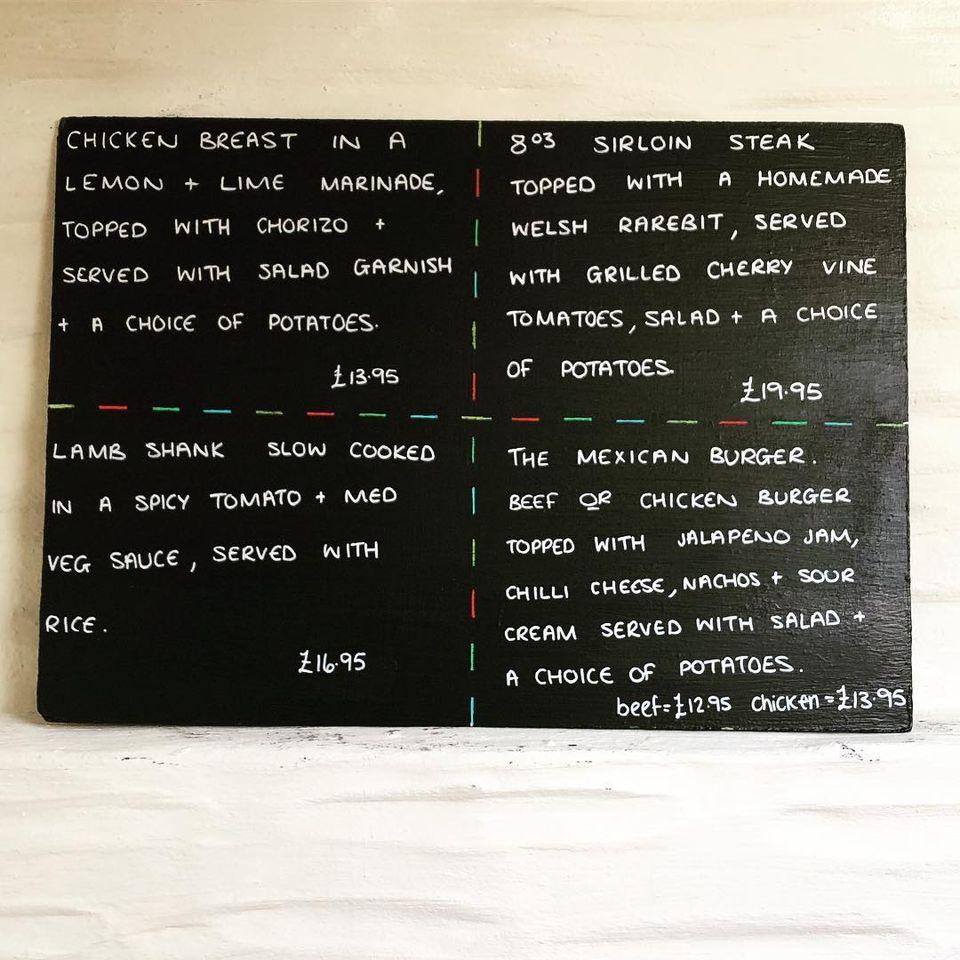 CHICKEN BREAST IN A
LEMON + LIME MARINADE,
TOPPED WITH CHORIZO +
SERVED WITH SALAD GARNISH
+ A CHOICE OF POTATOES.
£13.95
8oz SIRLOIN STEAK
TOPPED WITH A HOMEMADE
WELSH RAREBIT, SERVED
WITH GRILLED CHERRY VINE
TOMATOES, SALAD + A CHOICE
OF POTATOES.
£19.95
LAMB SHANK SLOW COOKED
IN A SPICY TOMATO + MED
VEG SAUCE, SERVED WITH
RICE.
£16.95
THE MEXICAN BURGER.
BEEF OR CHICKEN BURGER
TOPPED WITH JALAPENO JAM,
CHILLI CHEESE, NACHOS + SOUR
CREAM SERVED WITH SALAD +
A CHOICE OF POTATOES.
beef=£12.95 chicken=£13.95